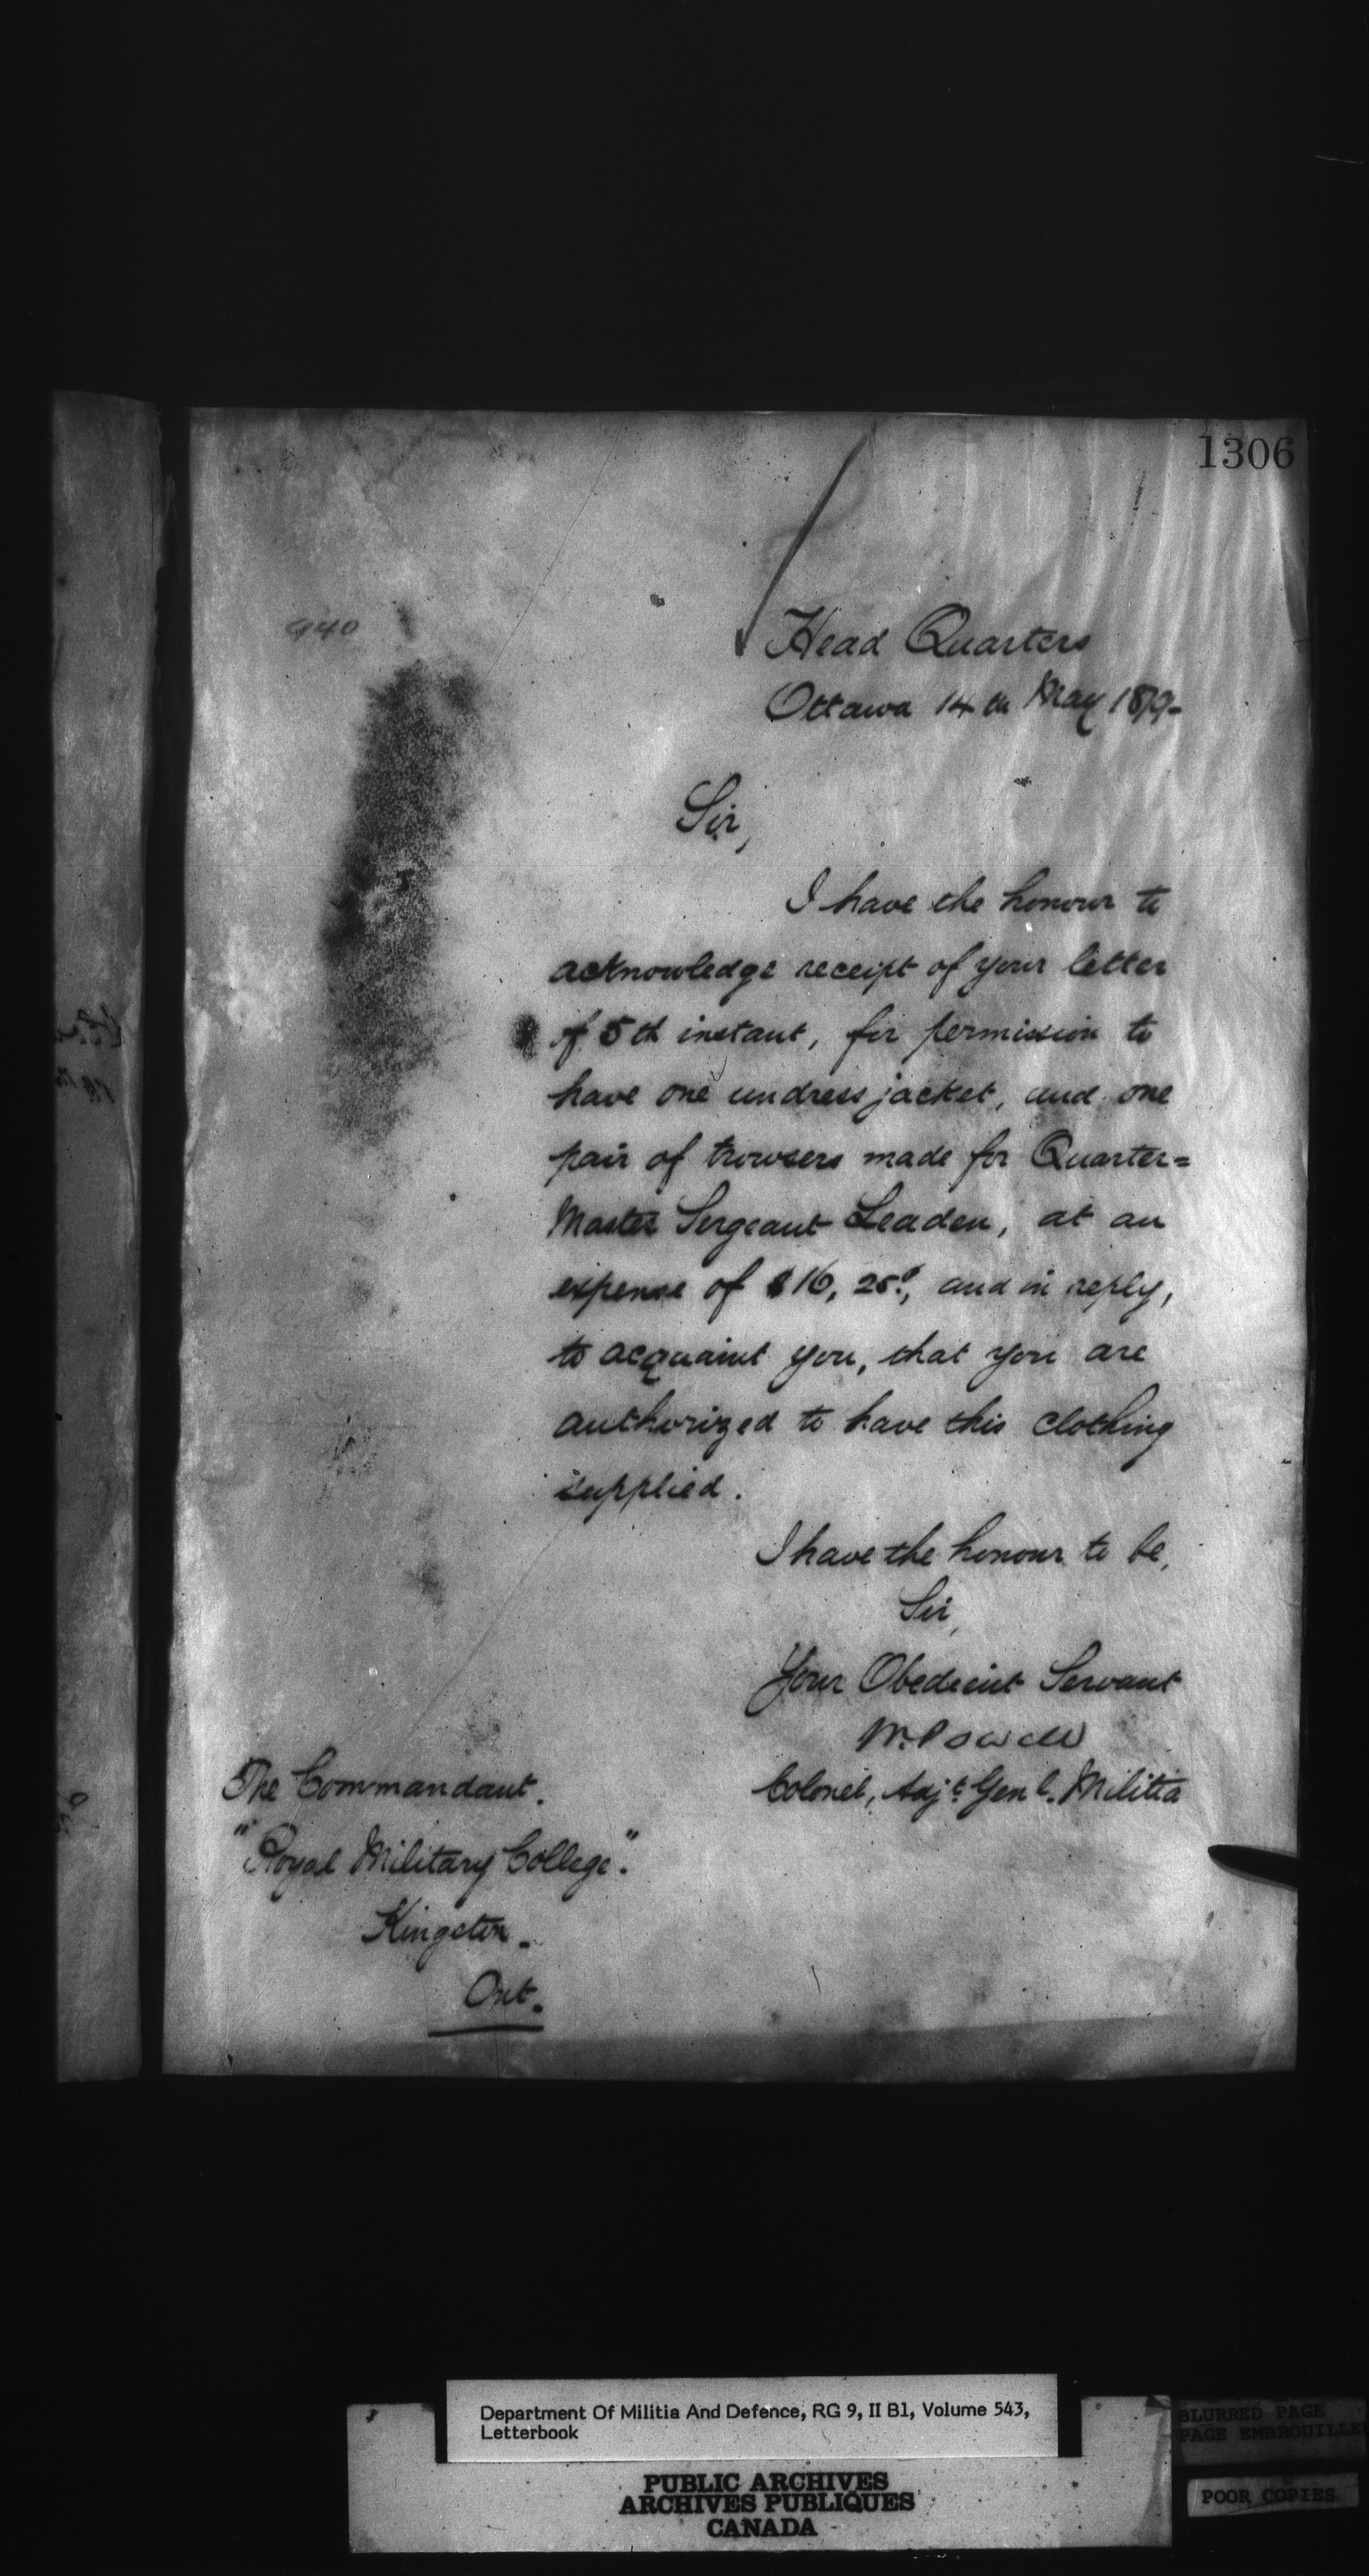 1306
940
Head Quarters
Ottawa 14th May 1879-
Sir,
I have the honour to
acknowledge receipt of your letter
of 5th instant, for permission to
have one undress jacket, and one
pair of trowsers made for Quarter=
Master Sergeant Leaden, at an
expense of $16, 25c, and in reply,
to acquaint you, that you are
authorized to have this clothing
supplied.
I have the honour to be,
Sir,
Your Obedient Servant
W. Powell
Colonel, Adjt Genl. Militia
The Commandant.
"Royal Military College".
Kingston.
Ont.
Department Of Militia And Defence, RG 9, II B1, Volume 543,
Letterbook
PUBLIC ARCHIVES
ARCHIVES PUBLIQUES
CANADA
BLURRED PAGE
PAGE EMBROUILLE
POOR COPIES